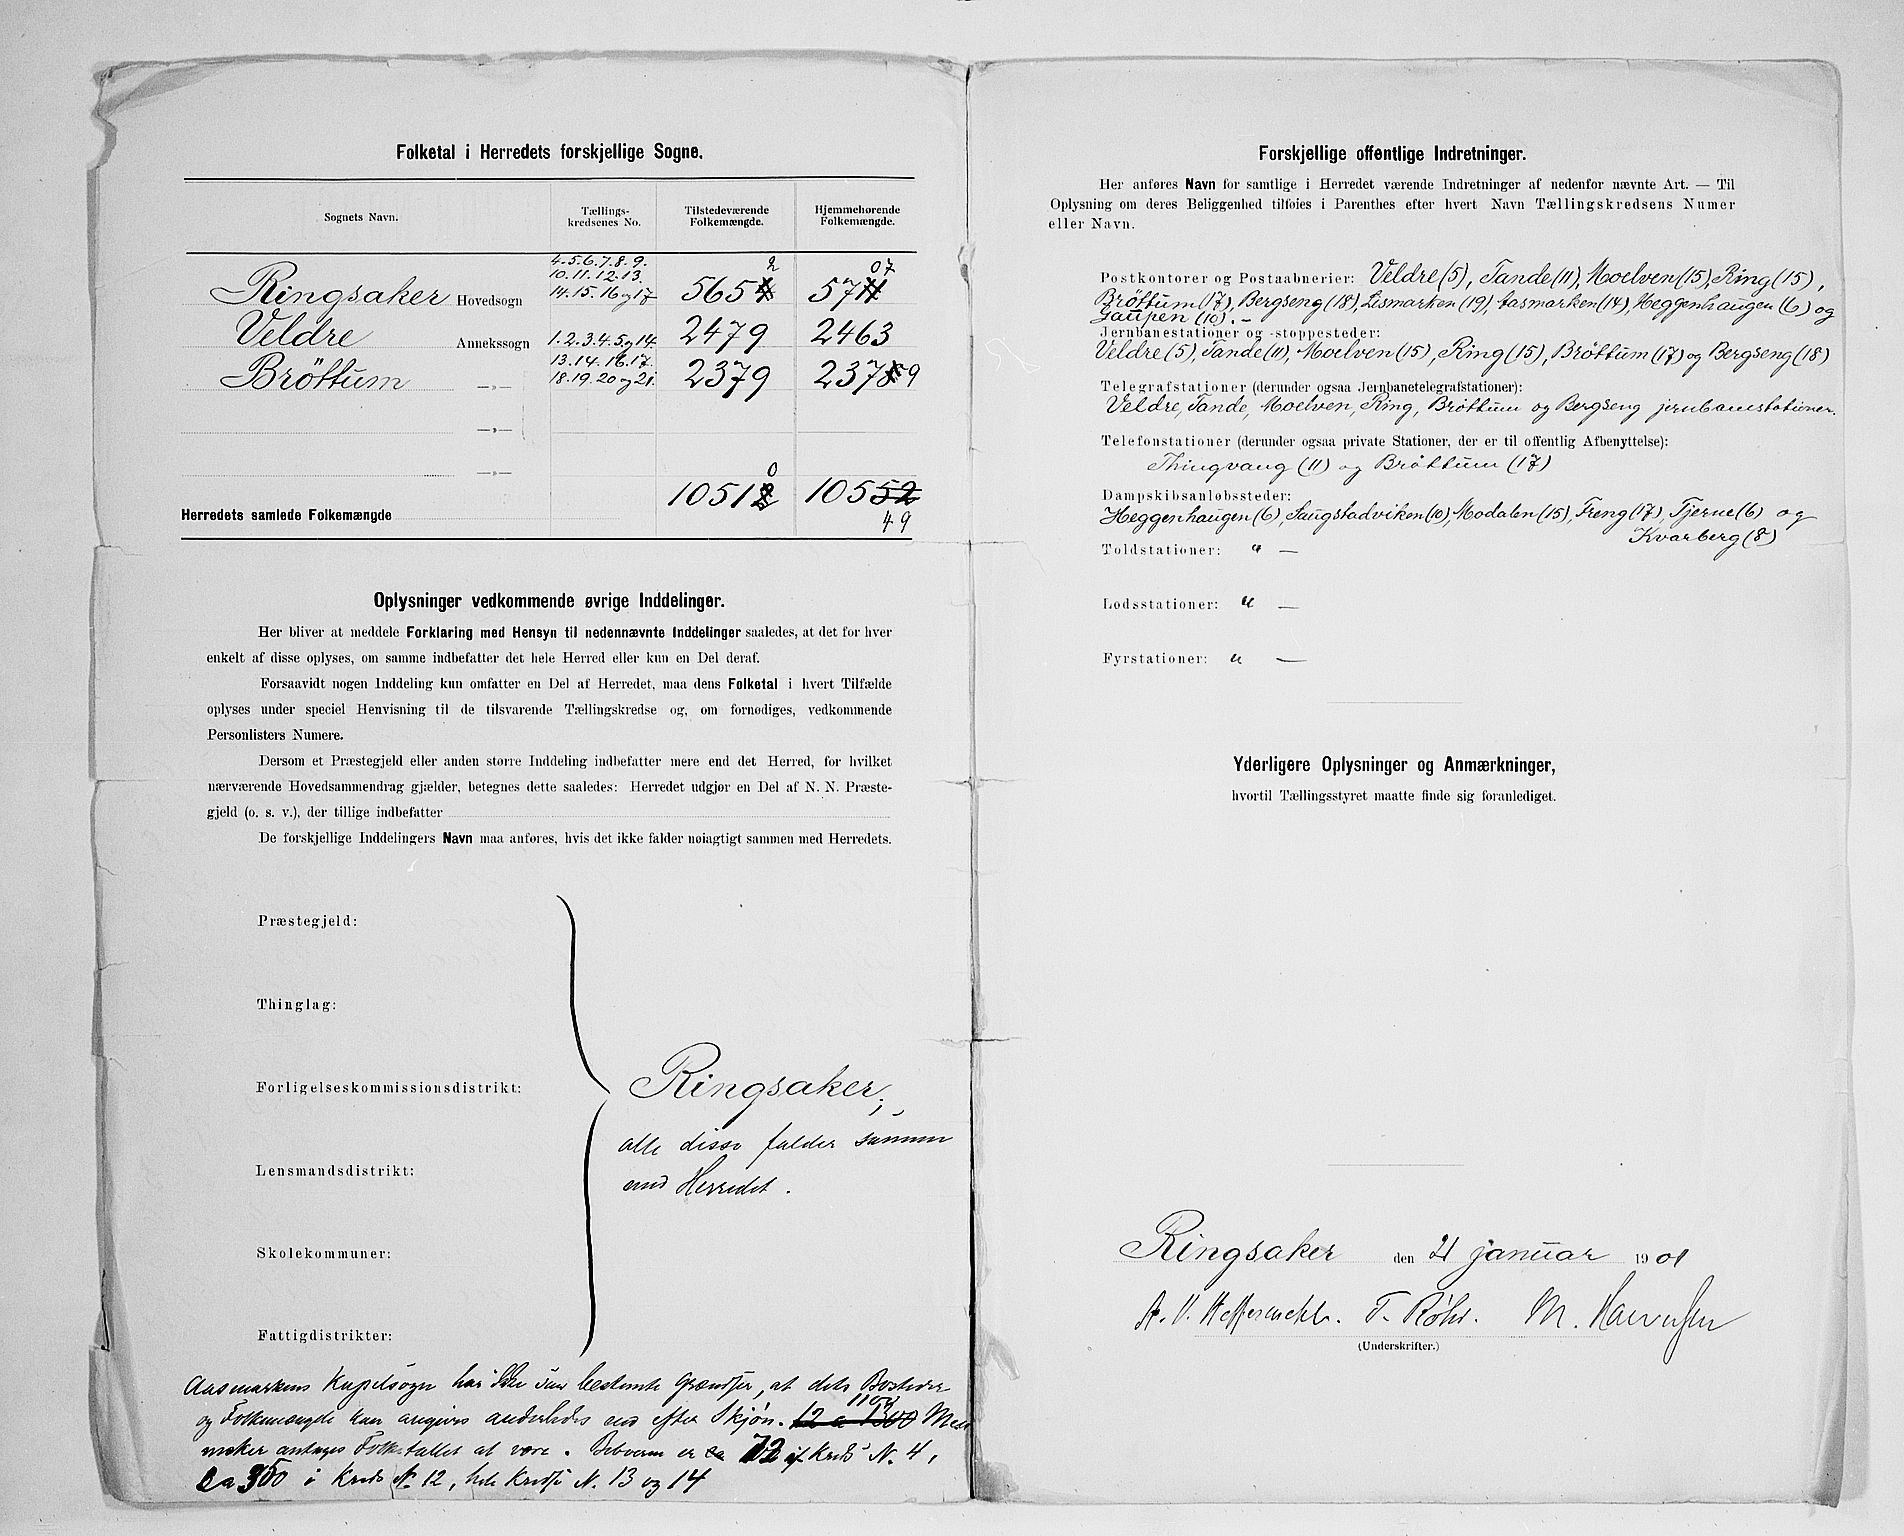 Folketal i Herredets forskjellige Sogne.
Sognets Navn.
Tællings-
kredsenes No.
Tilstedeværende
Folkemængde.
Hjemmehørende
Folkemængde.
4.5.6.7.8.9.
10.11.12.13.
Ringsaker Hovedsogn 14.15.16 og 17 5652 5707
Veldre Annekssogn 1.2.3.4.5 og 14. 2479 2463
13.14.16.17.
Bröttum —„— 18.19.20 og 21. 2379 2379
—„—
—„—
Herredets samlede Folkemængde 10510 10549
Oplysninger vedkommende øvrige Inddelinger.
Her bliver at meddele Forklaring med Hensyn til nedennævnte Inddelinger saaledes, at det for hver
enkelt af disse oplyses, om samme indbefatter det hele Herred eller kun en Del deraf.
Forsaavidt nogen Inddeling kun omfatter en Del af Herredet, maa dens Folketal i hvert Tilfælde
oplyses under speciel Henvisning til de tilsvarende Tællingskredse og, om fornødiges, vedkommende
Personlisters Numere.
Dersom et Præstegjeld eller anden større Inddeling indbefatter mere end det Herred, for hvilket
nærværende Hovedsammendrag gjælder, betegnes dette saaledes: Herredet udgjør en Del af N. N. Præste-
gjeld (o. s. v.), der tillige indbefatter
De forskjellige Inddelingers Navn maa anføres, hvis det ikke falder nøiagtigt sammen med Herredets.
Præstegjeld:
Thinglag:
Forligelseskommissionsdistrikt:
Ringsaker;
alle disse falder sammen
Lensmandsdistrikt:
med Herredet.
Skolekommuner:
Fattigdistrikter:
Aasmarkens Kapelsogn har ikke saa bestemte Grændser, at dets Bosteder
og Folkemængde kan angives anderledes end efter Skjøn. 12 a 1300
antages Folketallet at være. Beboerne er ca 72 af Kreds N. 4,
ca 350 i Kreds N. 12, hele Kredse N. 13 og 14
Forskjellige offentlige Indretninger.
Her anføres Navn for samtlige i Herredet værende Indretninger af nedenfor nævnte Art. — Til
Oplysning om deres Beliggenhed tilføies i Parenthes efter hvert Navn Tællingskredsens Numer
eller Navn.
Postkontorer og Postaabnerier: Veldre (5), Tande (11), Moelven (15), Ring (15),
Bröttum (17), Bergseng (18), Lismarken (19), Aasmarken (14), Heggenhaugen (6) og
Gaupen (10). –
Jernbanestationer og -stoppesteder:
Veldre (5), Tande (11), Moelven (15), Ring (15), Bröttum (17) og Bergseng (18)
Telegrafstationer (derunder ogsaa Jernbanetelegrafstationer):
Veldre, Tande, Moelven, Ring, Bröttum og Bergseng jernbanestationer.
Telefonstationer (derunder ogsaa private Stationer, der er til offentlig Afbenyttelse):
Thingvang (11) og Bröttum (17)
Dampskibsanløbssteder:
Heggenhaugen (6), Saugstadviken (10), Modalen (15), Freng (17), Tjerne (6) og
Kvarberg (8)
Toldstationer: " —
Lodsstationer: " —
Fyrstationer: " —
Yderligere Oplysninger og Anmærkninger,
hvortil Tællingsstyret maatte finde sig foranlediget.
Ringsaker den 21 januar 1901
(Underskrifter.)